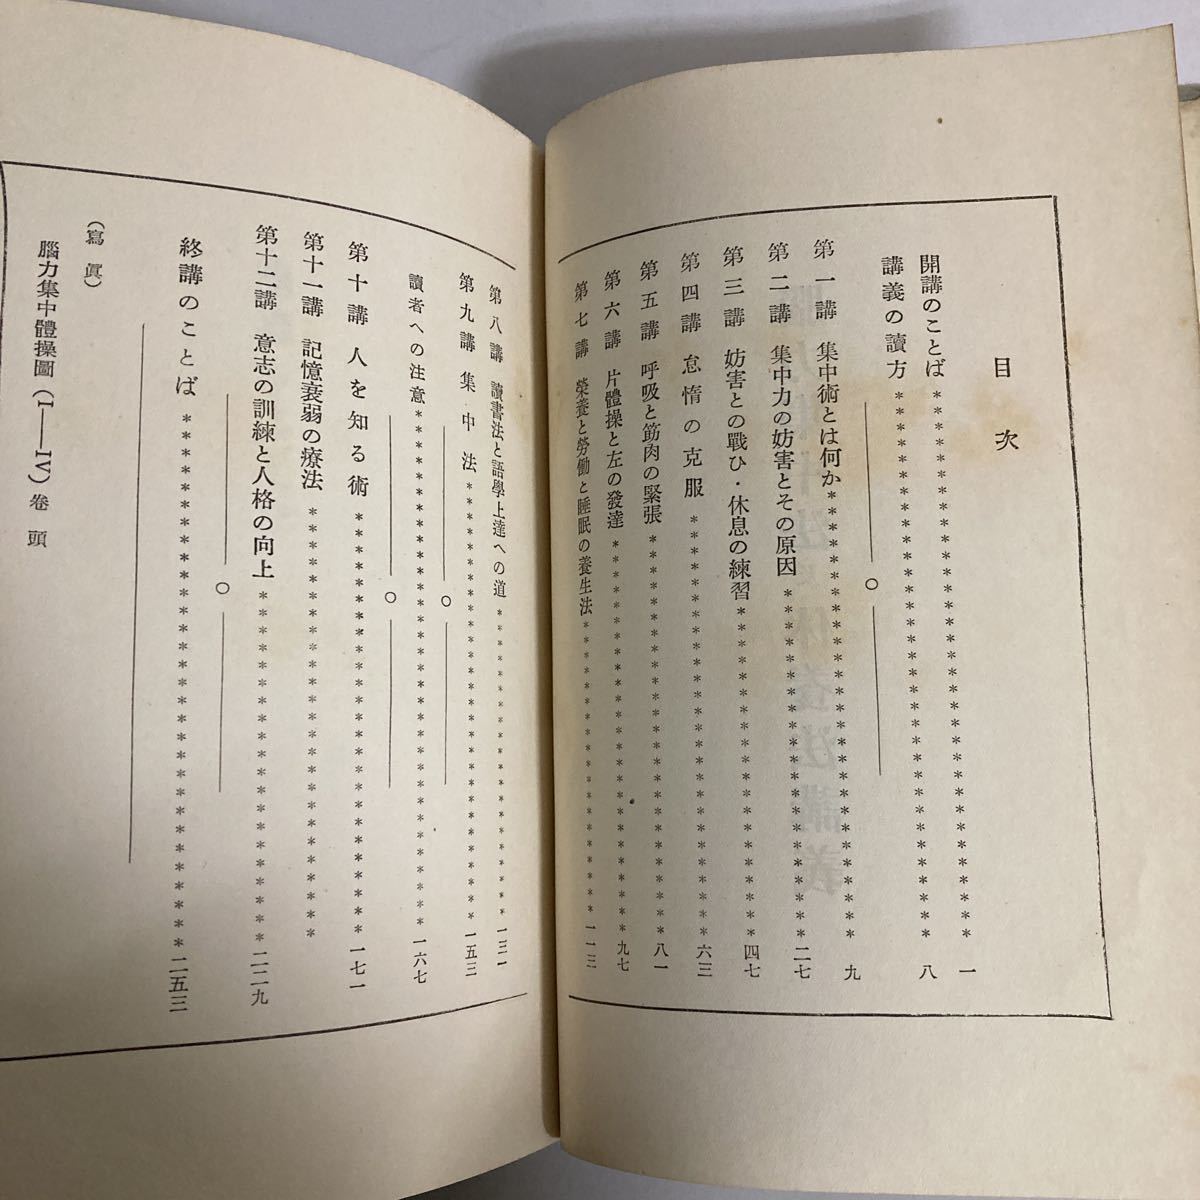 目次
開講のことば * * * * * * * * * * * * * * * * * * * * * * * 一
講義の讀方 * * * * * * * * * * * * * * * * * * * * * * * 八
第一講 集中術とは何か * * * * * * * * * * * * * * * * * * 九
第二講 集中力の妨害とその原因 * * * * * * * * * * * * * * 二七
第三講 妨害との戰ひ・休息の練習 * * * * * * * * * * * * * 四七
第四講 怠惰の克服 * * * * * * * * * * * * * * * * * 六三
第五講 呼吸と筋肉の緊張 * * * * * * * * * * * * * * * * 八一
第六講 片體操と左の發達 * * * * * * * * * * * * * * * * 九七
第七講 榮養と勞働と睡眠の養生法 * * * * * * * * * * * * * 一一三
第八講 讀書法と語學上達への道 * * * * * * * * * * * * * * 一三一
第九講 集中法 * * * * * * * * * * * * * * * * * * * * 一五三
讀者への注意 * * * * * * * * * * * * * * * * * * * * * * 一六七
第十講 人を知る術 * * * * * * * * * * * * * * * * * * 一七一
第十一講 記憶衰弱の療法 * * * * * * * * * * * * * * * * * *
第十二講 意志の訓練と人格の向上 * * * * * * * * * * * * * * 二二九
終講のことば * * * * * * * * * * * * * * * * * * * * * * 二五三
(寫眞)
腦力集中體操圖(I——IV) 卷頭